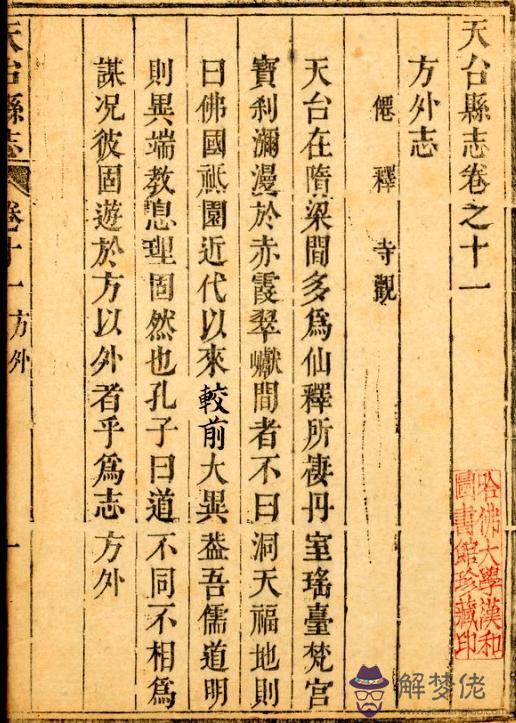 天台縣志卷之十一
方外志
僊釋 寺觀
天台在隋梁間多為仙釋所棲丹室瑤臺梵宮
寶刹瀰漫於赤霞翠巘間者不曰洞天福地則
曰佛國祗園近代以來較前大異葢吾儒道明
則異端教息理固然也孔子曰道不同不相為
謀况彼固遊於方以外者乎為志方外
天台縣志 卷十一 方外 一
哈佛大學漢和
圖書館珍藏印
解梦佬